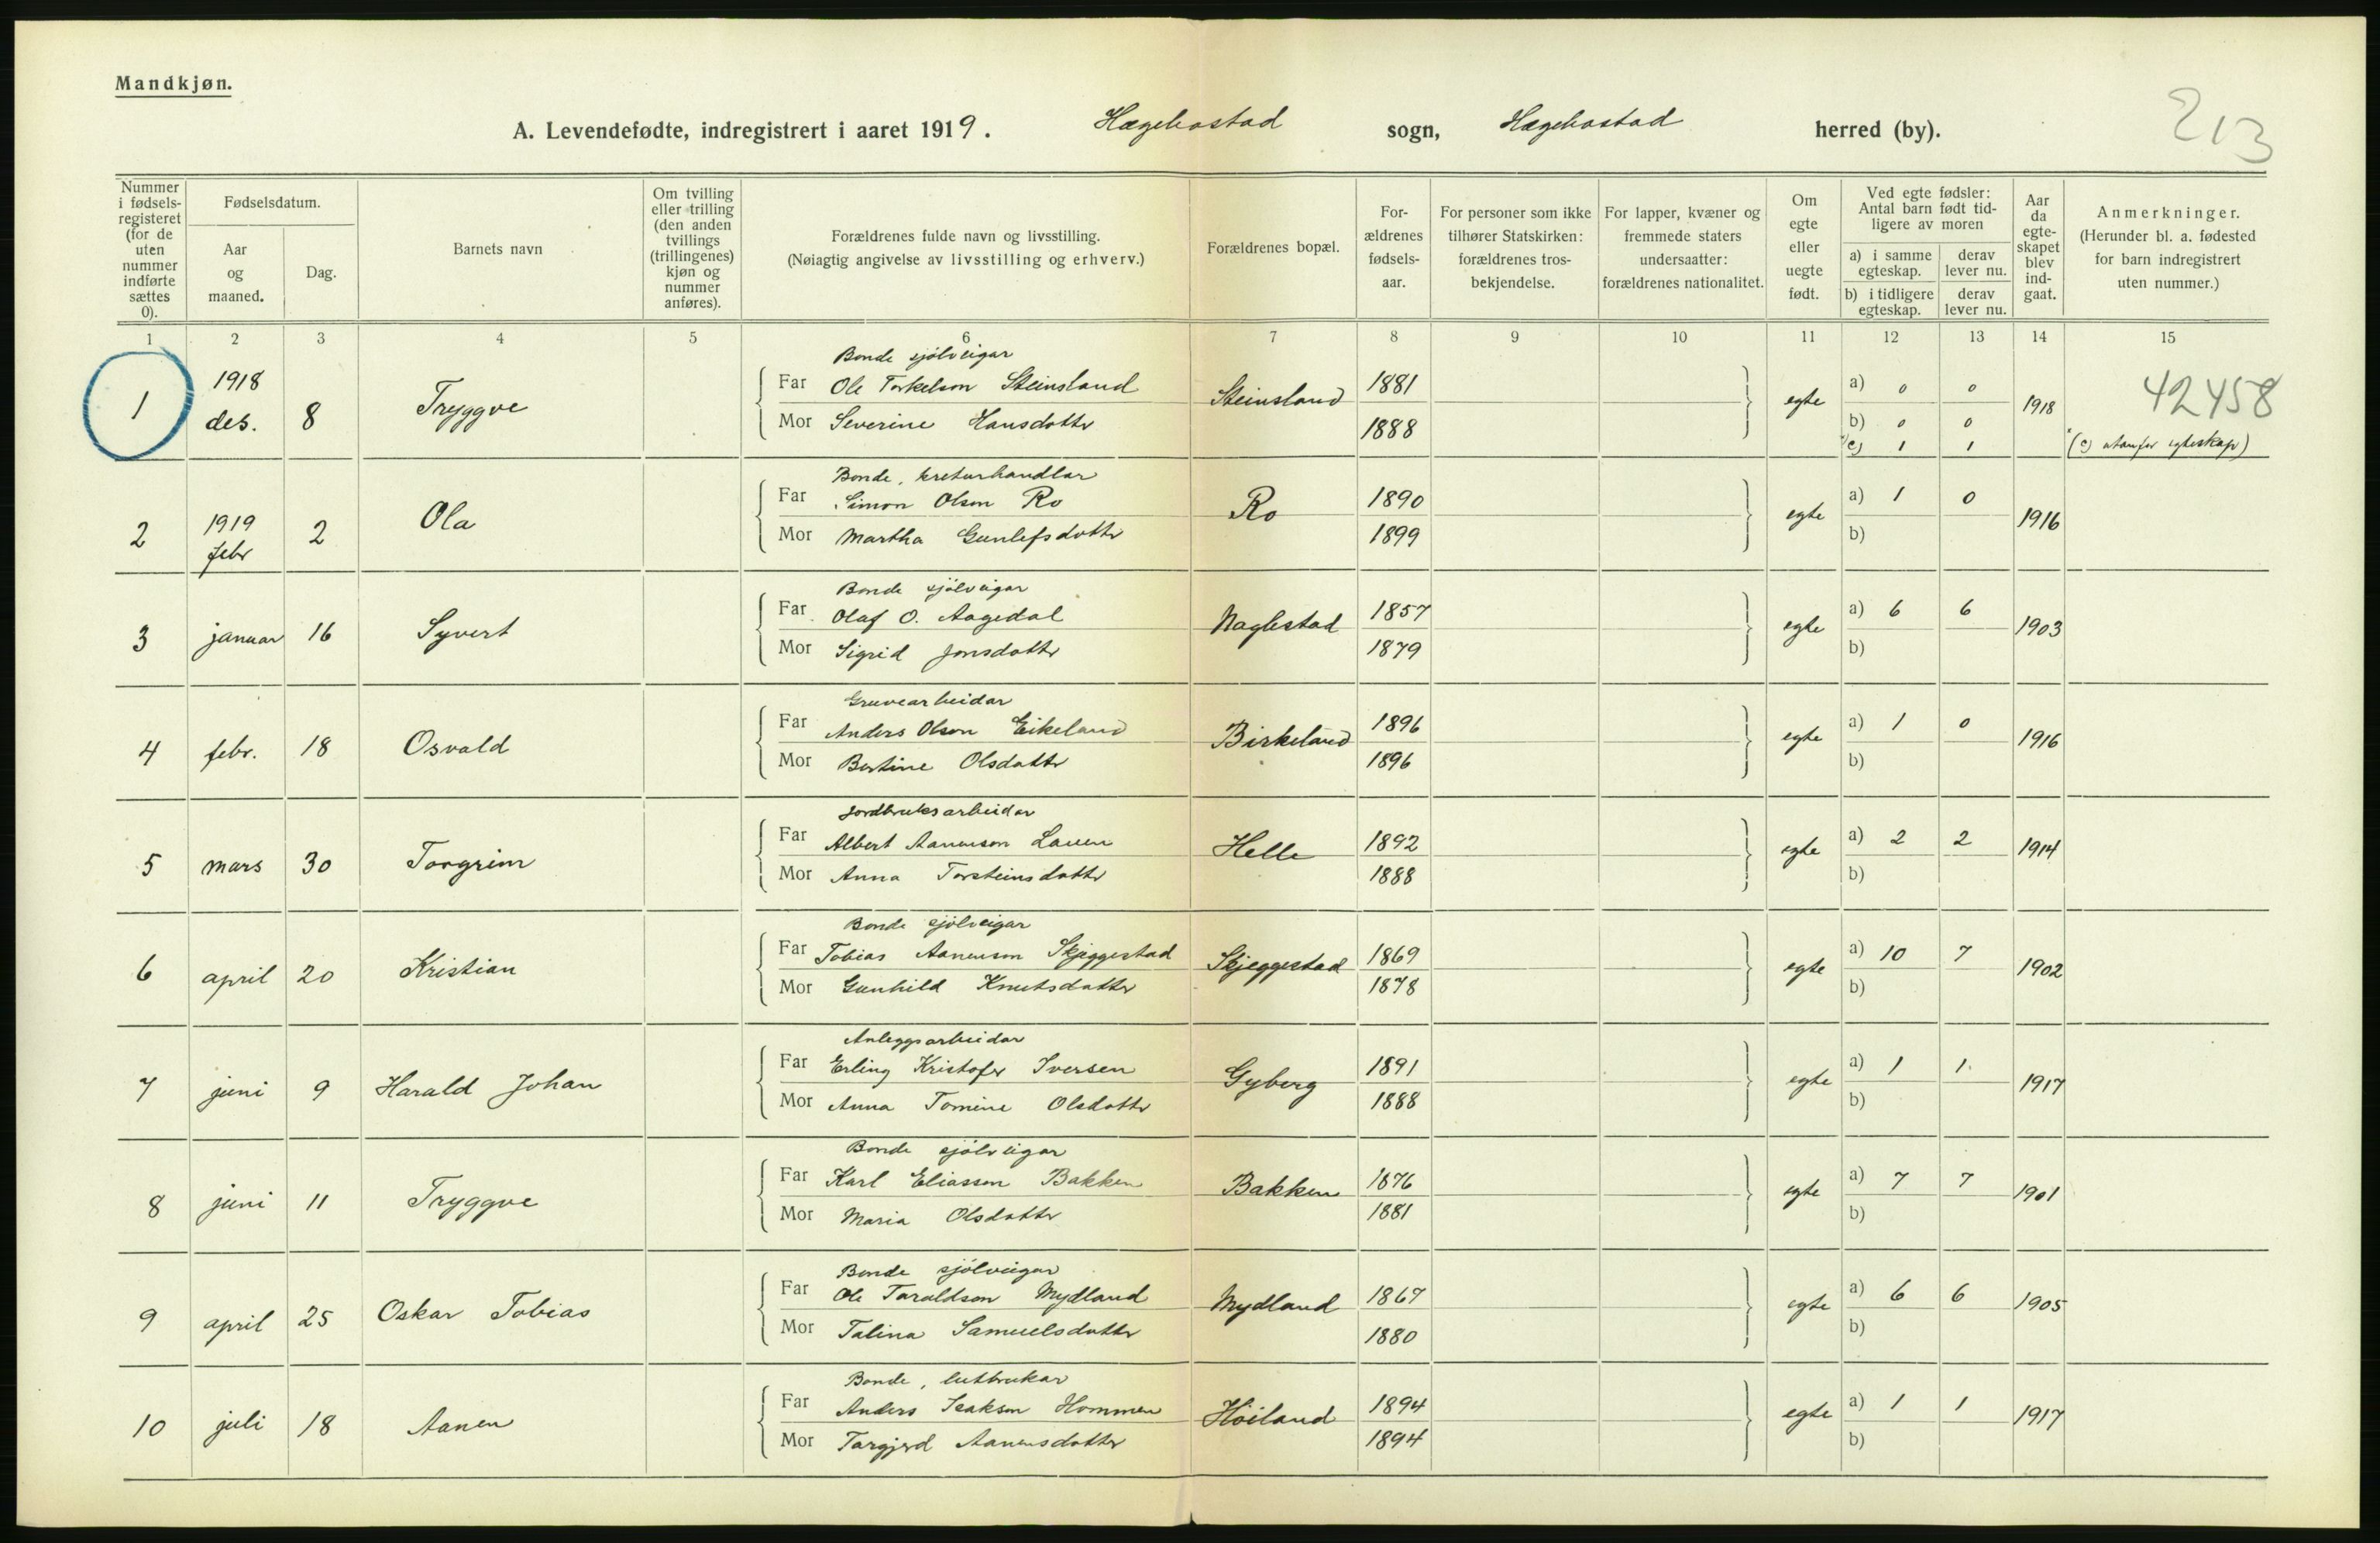 Mandkjøn.
A. Levendefødte, indregistrert i aaret 1919. Hægebostad sogn, Hægebostad herred (by). 213
Nummer i fødsels-registeret (for de uten nummer indførte sættes 0).
Fødselsdatum.
Aar og maaned.
Dag.
Barnets navn
Om tvilling eller trilling (den anden tvillings (trillingenes) kjøn og nummer anføres).
Forældrenes fulde navn og livsstilling.
(Nøiagtig angivelse av livsstilling og erhverv.)
Forældrenes bopæl.
For-ældrenes fødsels-aar.
For personer som ikke tilhører Statskirken: forældrenes tros-bekjendelse.
For lapper, kvæner og fremmede staters undersaatter: forældrenes nationalitet.
Om egte eller uegte født.
Ved egte fødsler: Antal barn født tid-ligere av moren
a) i samme egteskap. derav lever nu.
b) i tidligere egteskap. derav lever nu.
Aar da egte-skapet blev ind-gaat.
Anmerkninger.
(Herunder bl. a. fødested for barn indregistrert uten nummer.)
1 2 3 4 5 6 7 8 9 10 11 12 13 14 15
Bonde sjölveigar
1 1918 des. 8 Tryggve Far Ole Torkelson Steinsland Steinsland 1881 egte a) 0 0 1918 42458
Mor Severine Hansdotter 1888 b) 0 0
c) 1 1 (c) utanfor egteskap)
Bonde, kreturhandlar
2 1919 febr 2 Ola Far Simon Olson Ro Ro 1890 egte a) 1 0 1916
Mor Martha Gunlefsdotter 1899 b)
Bonde sjölveigar
3 januar 16 Syvert Far Olaf O. Aagedal Naglestad 1857 egte a) 6 6 1903
Mor Sigrid Jonsdotter 1879 b)
Gruvearbeidar
4 febr. 18 Osvald Far Anders Olson Eikeland Birkeland 1896 egte a) 1 0 1916
Mor Bertine Olsdotter 1896 b)
Jordbruksarbeidar
5 mars 30 Torgrim Far Albert Aanenson Lauen Helle 1892 egte a) 2 2 1914
Mor Anna Torsteinsdotter 1888 b)
Bonde sjölveigar
6 april 20 Kristian Far Tobias Aanenson Skjeggestad Skjeggestad 1869 egte a) 10 7 1902
Mor Gunhild Knutsdotter 1878 b)
Anleggsarbeidar
7 juni 9 Harald Johan Far Erling Kristofer Iversen Gyberg 1891 egte a) 1 1 1917
Mor Anna Tomine Olsdotter 1888 b)
Bonde sjölveigar
8 juni 11 Tryggve Far Karl Eliasson Bakken Bakken 1876 egte a) 7 7 1901
Mor Maria Olsdotter 1881 b)
Bonde sjölveigar
9 april 25 Oskar Tobias Far Ole Taraldson Mydland Mydland 1867 egte a) 6 6 1905
Mor Talina Samuelsdotter 1880 b)
Bonde, lutbrukar
10 juli 18 Aanen Far Anders Isakson Hommen Höiland 1894 egte a) 1 1 1917
Mor Torgjerd Aanensdotter 1894 b)